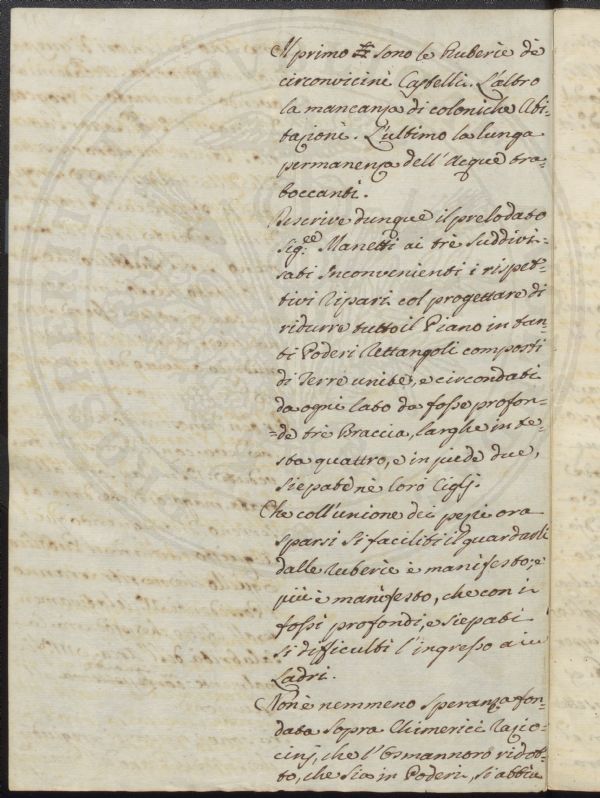 Il primo sono le Ruberie de
circonvicini Castelli. L'altro
la mancanza di coloniche Abi-
tazioni. L'ultimo la lunga
permanenza dell'Acque tra-
boccanti.
Ascrive dunque il prelodato
Sig.re Manetti ai trè suddivi-
sati Inconvenienti i rispet-
tivi Ripari col progettare di
ridurre tutto il Piano in tan-
ti Poderi Rettangoli composti
di Terre unite, e circondati
da ogni lato da fosse profon-
=de trè Braccia, larghe in te-
sta quattro, e in piede due,
siepate nè loro Ciglj.
Che coll'unione dei pezzi ora
sparsi si faciliti il guardarli
dalle Ruberie è manifesto, e
più è manifesto, che con i
fossi profondi, e siepati
si difficulti l'ingresso ai
Ladri.
Non è nemmeno speranza fon-
data sopra Chimerici Razio-
cinj, che l'Osmannoro ridot-
to, che sia in Poderi, si abbia